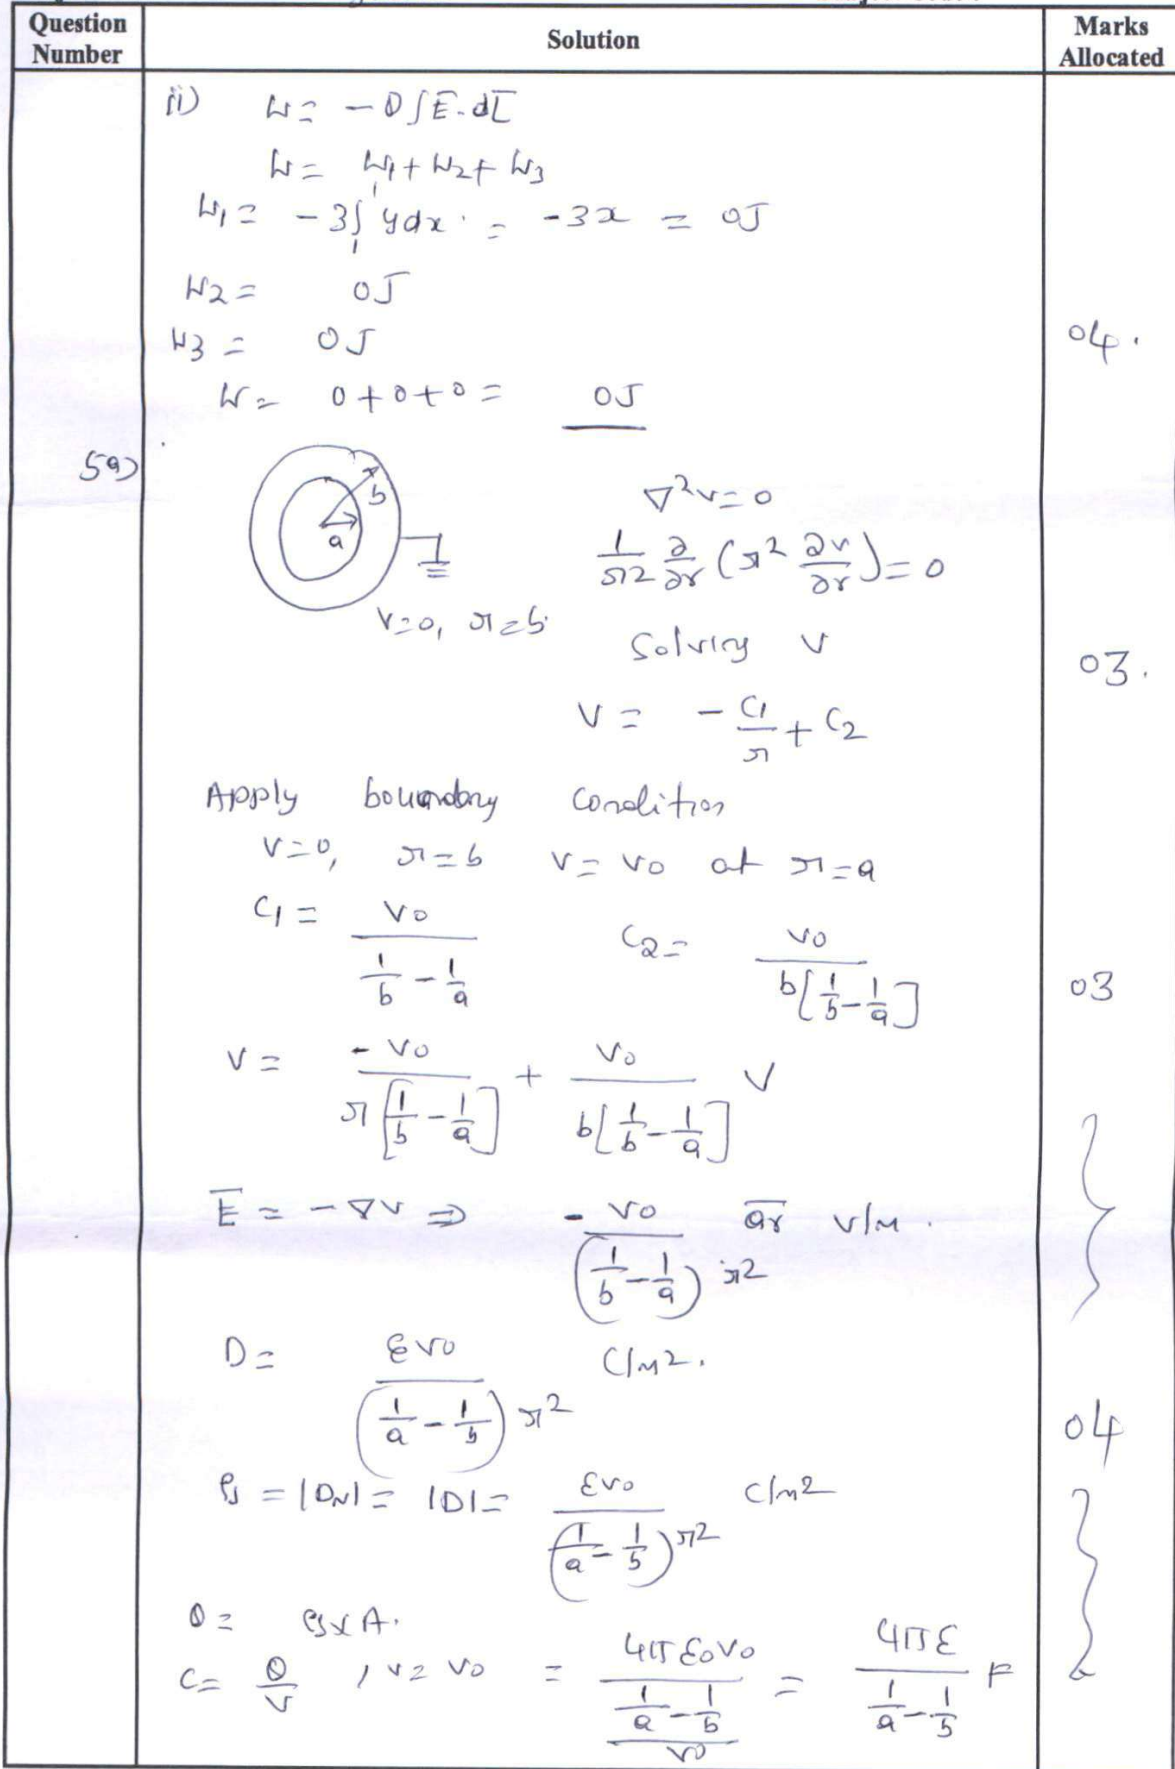 Question Number | Solution | Marks Allocated
ii) W = -Q ∫ E̅ . dL̅
W = W1 + W2 + W3
W1 = -3 ∫₁¹ y dx = -3x = 0J
W2 = 0J
W3 = 0J
04.
W = 0 + 0 + 0 = 0J
5a)
b
a
∇²V = 0
1/r² ∂/∂r (r² ∂V/∂r) = 0
V=0, r=b
Solving V
03.
V = - C1/r + C2
Apply boundary Condition
V=0, r=b V = V0 at r=a
C1 = V0 / (1/b - 1/a) C2 = V0 / b[1/b - 1/a]
03
V = -V0 / r[1/b - 1/a] + V0 / b[1/b - 1/a] V
E̅ = -∇V ⇒ -V0 / (1/b - 1/a) r² a̅r V/m.
D = εV0 / (1/a - 1/b) r² C/m².
04
ρs = |DN| = |D| = εV0 / (1/a - 1/b) r² C/m2
Q = ρs x A.
C = Q/V , V = V0 = 4πε0V0 / (1/a - 1/b) / V0 = 4πε / (1/a - 1/b) F